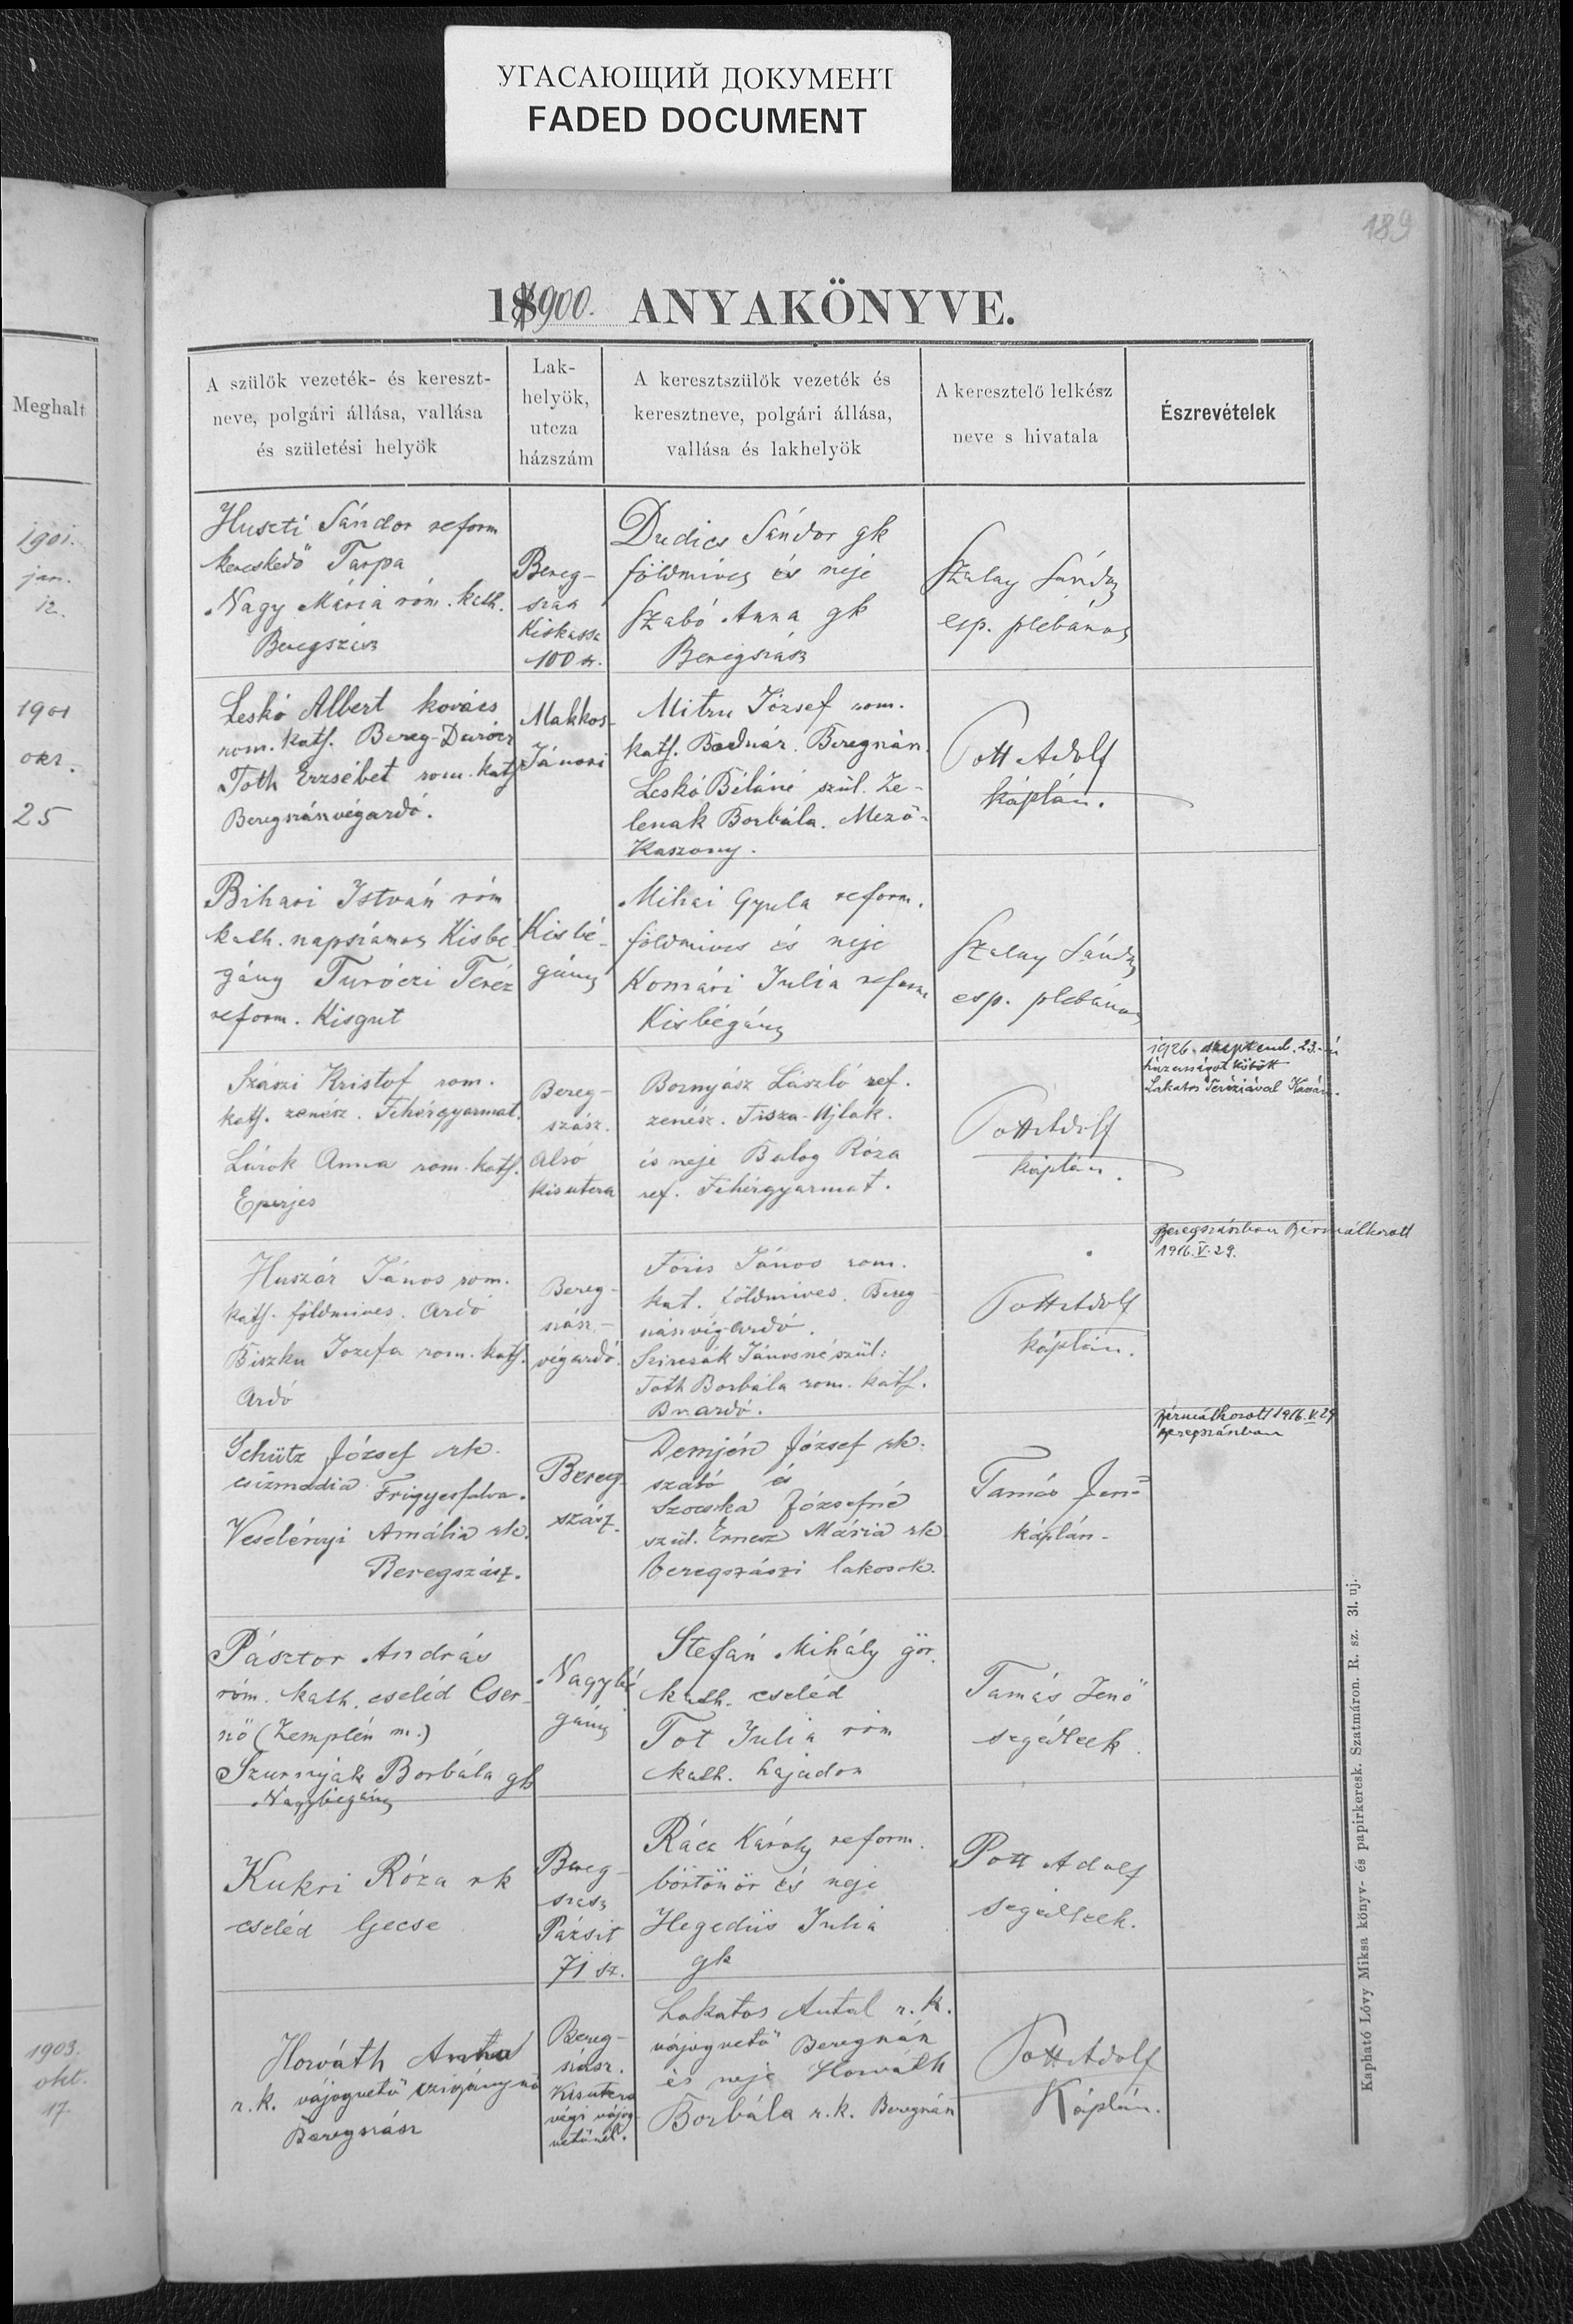 УГАСАЮЩИЙ ДОКУМЕНТ
FADED DOCUMENT
189
1900. ANYAKÖNYVE.
Meghalt
1901.
jan.
12.
1901
okt.
25
1903.
okt.
17
A szülők vezeték- és kereszt-
neve, polgári állása, vallása
és születési helyök
Lak-
helyök,
utcza
házszám
A keresztszülők vezeték és
keresztneve, polgári állása,
vallása és lakhelyök
A keresztelő lelkész
neve s hivatala
Észrevételek
Huszti Sándor reform
kereskedő Tarpa
Nagy Mária róm. kath.
Beregszász
Bereg-
szász
Kiskassa
100 sz.
Dudics Sándor gk
földmives és neje
Szabó Anna gk
Beregszász
Szalay Sándor
esp. plebános
Leskó Albert kovács
rom. kath. Bereg-Darócz
Toth Erzsébet rom. kath
Beregszászvégardó.
Makkos-
Jánosi
Mitru József rom.
kath. Bodnár. Beregszász.
Leskó Béláné szül. Ze-
lenak Borbála. Mező-
Kaszony.
Pott Adolf
káplán.
Bihari István róm
kath. napszámos Kisbé-
gány Turóczi Teréz
reform. Kisgut
Kisbé-
gány
Mihai Gyula reform.
földmives és neje
Komári Julia reform
Kisbégány
Szalay Sándor
esp. plebános
Szászi Kristof rom.
kath. zenész. Fehérgyarmat.
Anna rom. kath.
Eperjes
Bereg-
szász.
Alsó
kisutcza
Bornyász László ref.
zenész. Tisza-Ujlak.
és neje Balog Róza
ref. Fehérgyarmat.
Pott Adolf
káplán.
1926. szeptemb. 23.-án
házasságot kötött
Lakatos Teréziával
Huszár János rom.
kath. földmives. Ardó
Biszku Jozefa rom. kath.
Ardó
Bereg-
szász-
végardó.
Fóris János rom.
kat. földmives. Bereg-
szászvég-Ardó.
Szircsák Jánosné szül:
Toth Borbála rom. kath.
Bvardó.
Pott Adolf
káplán.
Beregszászban Bérmálkozott
1916. V. 29.
Schütz József rk.
csizmadia Frigyesfalva.
Veselényi Amália rk.
Beregszász.
Bereg-
szász.
Demjén József rk.
szabó és
Szocska Józsefné
szül. Ernesz Mária rk
beregszászi lakosok.
Tamás Jenő
káplán.
Bérmálkozott 1916. V. 29
Beregszászban
Pásztor András
róm. kath. cseléd Cser-
nő (Zemplén m.)
Szurnyák Borbála gk
Nagybégány
Nagybé
gány
Stefán Mihály gör.
kath. cseléd
Tot Julia róm
kath. hajadon
Tamás Jenő
segédlelk.
Kukri Róza rk
cseléd Gecse
Bereg-
szász
Pázsit
71 sz.
Rácz Károly reform.
börtönör és neje
Hegedüs Julia
gk
Pott Adolf
segédlelk.
Horváth Anna
r. k. vájogvető czigánynő
Beregszász
Bereg-
szász.
Kisutcza
végi vájog-
vetőnél.
Lakatos Antal r. k.
vájogvető Beregszász
és neje Horváth
Borbála r. k. Beregszász
Pott Adolf
Káplán.
Kapható Lővy Miksa könyv- és papirkeresk. Szatmáron. R. sz. 31. uj.